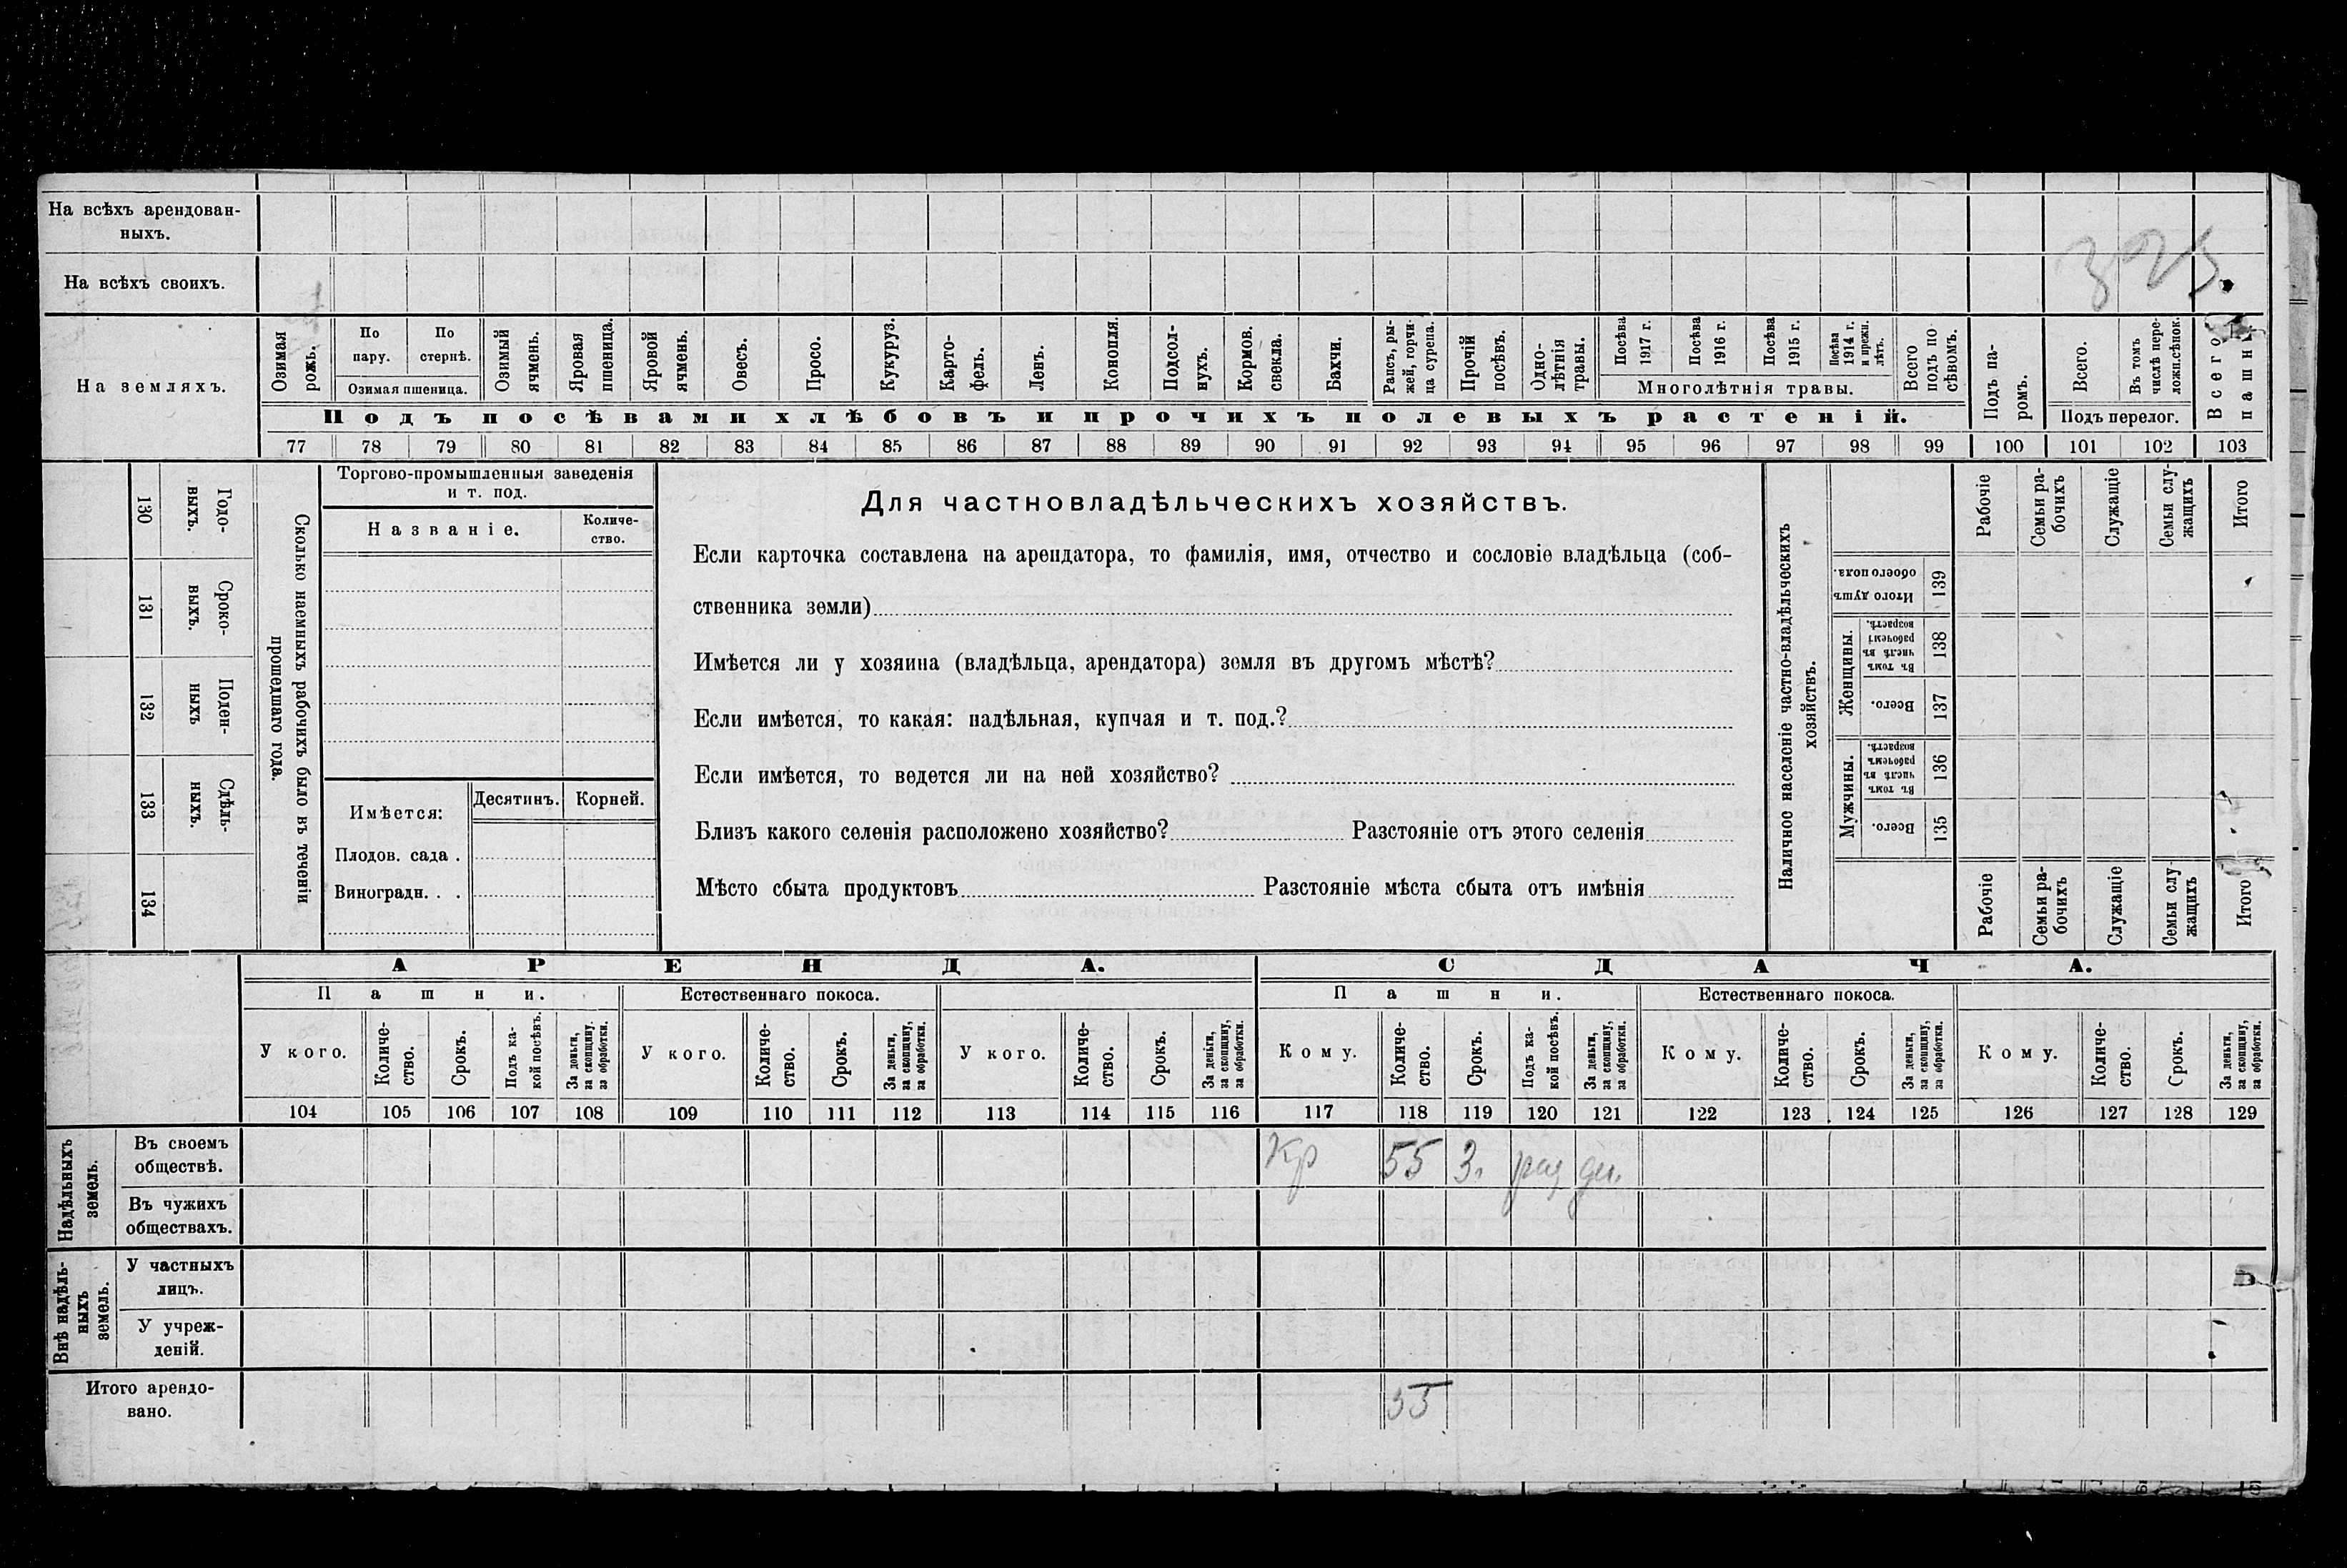 На всѣхъ арендован-
ныхъ.
На всѣхъ своихъ.
325.
На земляхъ.
Озимая рожь.
По пару.
По стернѣ.
Озимая пшеница.
Озимый ячмень.
Яровая пшеница.
Яровой ячмень.
Овесъ.
Просо.
Кукуруз.
Карто-
фель.
Ленъ.
Конопля.
Подсол-
нухъ.
Кормов. свекла.
Бахчи.
Рапсъ, ры-
жей, горчи-
ца сурепа.
Прочій посѣвъ.
Одно-
лѣтнія травы.
Посѣва 1917 г.
Посѣва 1916 г.
Посѣва 1915 г.
Посѣва 1914 г. и прежн. лѣтъ.
Многолѣтнія травы.
Всего подъ по
сѣвомъ.
Подъ па-
ромъ.
Всего.
Въ томъ числѣ пере-
ложн.сѣнок.
Подъ перелог.
Всего пашни
Подъ посѣвами хлѣбовъ и прочихъ полевыхъ растеній.
77 78 79 80 81 82 83 84 85 86 87 88 89 90 91 92 93 94 95 96 97 98 99 100 101 102 103
130 Годо-
выхъ.
131 Сроко-
выхъ.
132 Поден-
ныхъ
133 Сдѣль-
ныхъ.
134
Сколько наемныхъ рабочихъ было въ теченіи
прошедшаго года.
Торгово-промышленныя заведенія
и т. под.
Названіе.
Количе-
ство.
Имѣется:
Десятинъ.
Корней.
Плодов. сада .
Виноградн. . .
Для частновладѣльческихъ хозяйствъ.
Если карточка составлена на арендатора, то фамилія, имя, отчество и сословіе владѣльца (соб-
ственника земли)
Имѣется ли у хозяина (владѣльца, арендатора) земля въ другомъ мѣстѣ?
Если имѣется, то какая: надѣльная, купчая и т. под.?
Если имѣется, то ведется ли на ней хозяйство?
Близъ какого селенія расположено хозяйство? Разстояніе отъ этого селенія
Мѣсто сбыта продуктовъ Разстояніе мѣста сбыта отъ имѣнія
Наличное населеніе частно-владѣльческихъ
хозяйствъ.
Рабочіе
Семьи ра-
бочихъ
Служащіе
Семьи слу-
жащихъ
Итого
Итого душъ обоего пола. 139
Женщины.
Въ томъ числѣ въ рабочемъ возрастѣ. 138
Всего. 137
Мужчины.
Въ томъ числѣ въ рабочемъ возрастѣ. 136
Всего. 135
Рабочіе
Семьи ра-
бочихъ
Служащіе
Семьи слу
жащихъ
Итого
АРЕНДА.
СДАЧА.
Пашни.
Естественнаго покоса.
Пашни.
Естественнаго покоса.
У кого.
Количе-
ство.
Срокъ.
Подъ ка-
кой посѣвъ.
За деньги, за скопщину, за обработки.
У кого.
Количе-
ство.
Срокъ.
За деньги, за скопщину, за обработки.
У кого.
Количе-
ство.
Срокъ.
За деньги, за скопщину, за обработки.
Кому.
Количе-
ство.
Срокъ.
Подъ ка-
кой посѣвъ.
За деньги, за скопщину, за обработки.
Кому.
Количе-
ство.
Срокъ.
За деньги, за скопщину, за обработки.
Кому.
Количе-
ство.
Срокъ.
За деньги, за скопщину, за обработки.
104 105 106 107 108 109 110 111 112 113 114 115 116 117 118 119 120 121 122 123 124 125 126 127 128 129
Надѣльныхъ
земель.
Въ своемъ
обществѣ.
Кр 55 3. раз ден.
Въ чужихъ
обществахъ.
Внѣ надѣль-
ныхъ
земель.
У частныхъ
лицъ.
У учреж-
деній.
Итого арендо-
вано.
55